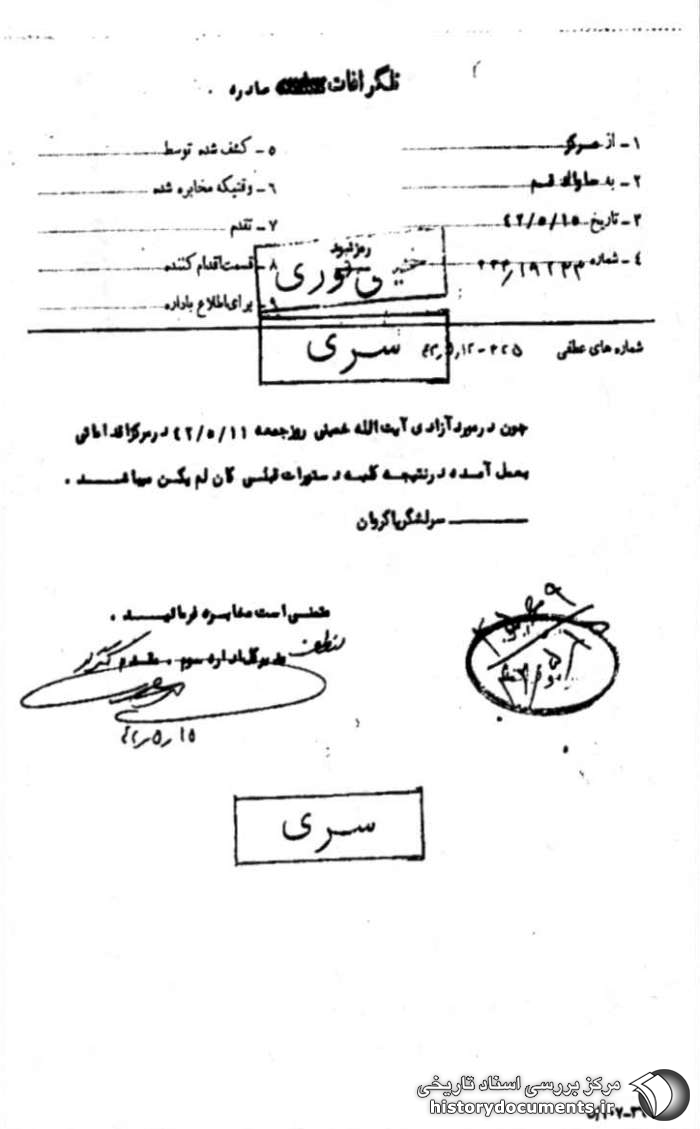 تلگرافات صادره
۱ـ از مرکز
۲ـ به ساواک قم
۳ـ تاریخ ۴۲/۵/۱۵
۴ـ شماره
۵ـ کشف شده توسط
۶ـ وقتیکه مخابره شده
۷ـ تقدم
۸ـ قسمت اقدام کننده
۹ـ برای اطلاع باداره
رمز نبود
خیلی فوری
سری
شماره های عطفی ۴۲۵-۴۲٫۵٫۱۲
چون در مورد آزادی آیت الله خمینی روز جمعه ۴۲/۵/۱۱ در مرکز اقداماتی
بعمل آمده در نتیجه کلیه دستورات قبلی کان لم یکن میباشد .
سرلشگر پاکروان
متمنی است مخابره فرمائید .
مدیر کل اداره سوم . مقدم
۴۲٫۵٫۱۵
سری
مرکز بررسی اسناد تاریخی
historydocuments.ir